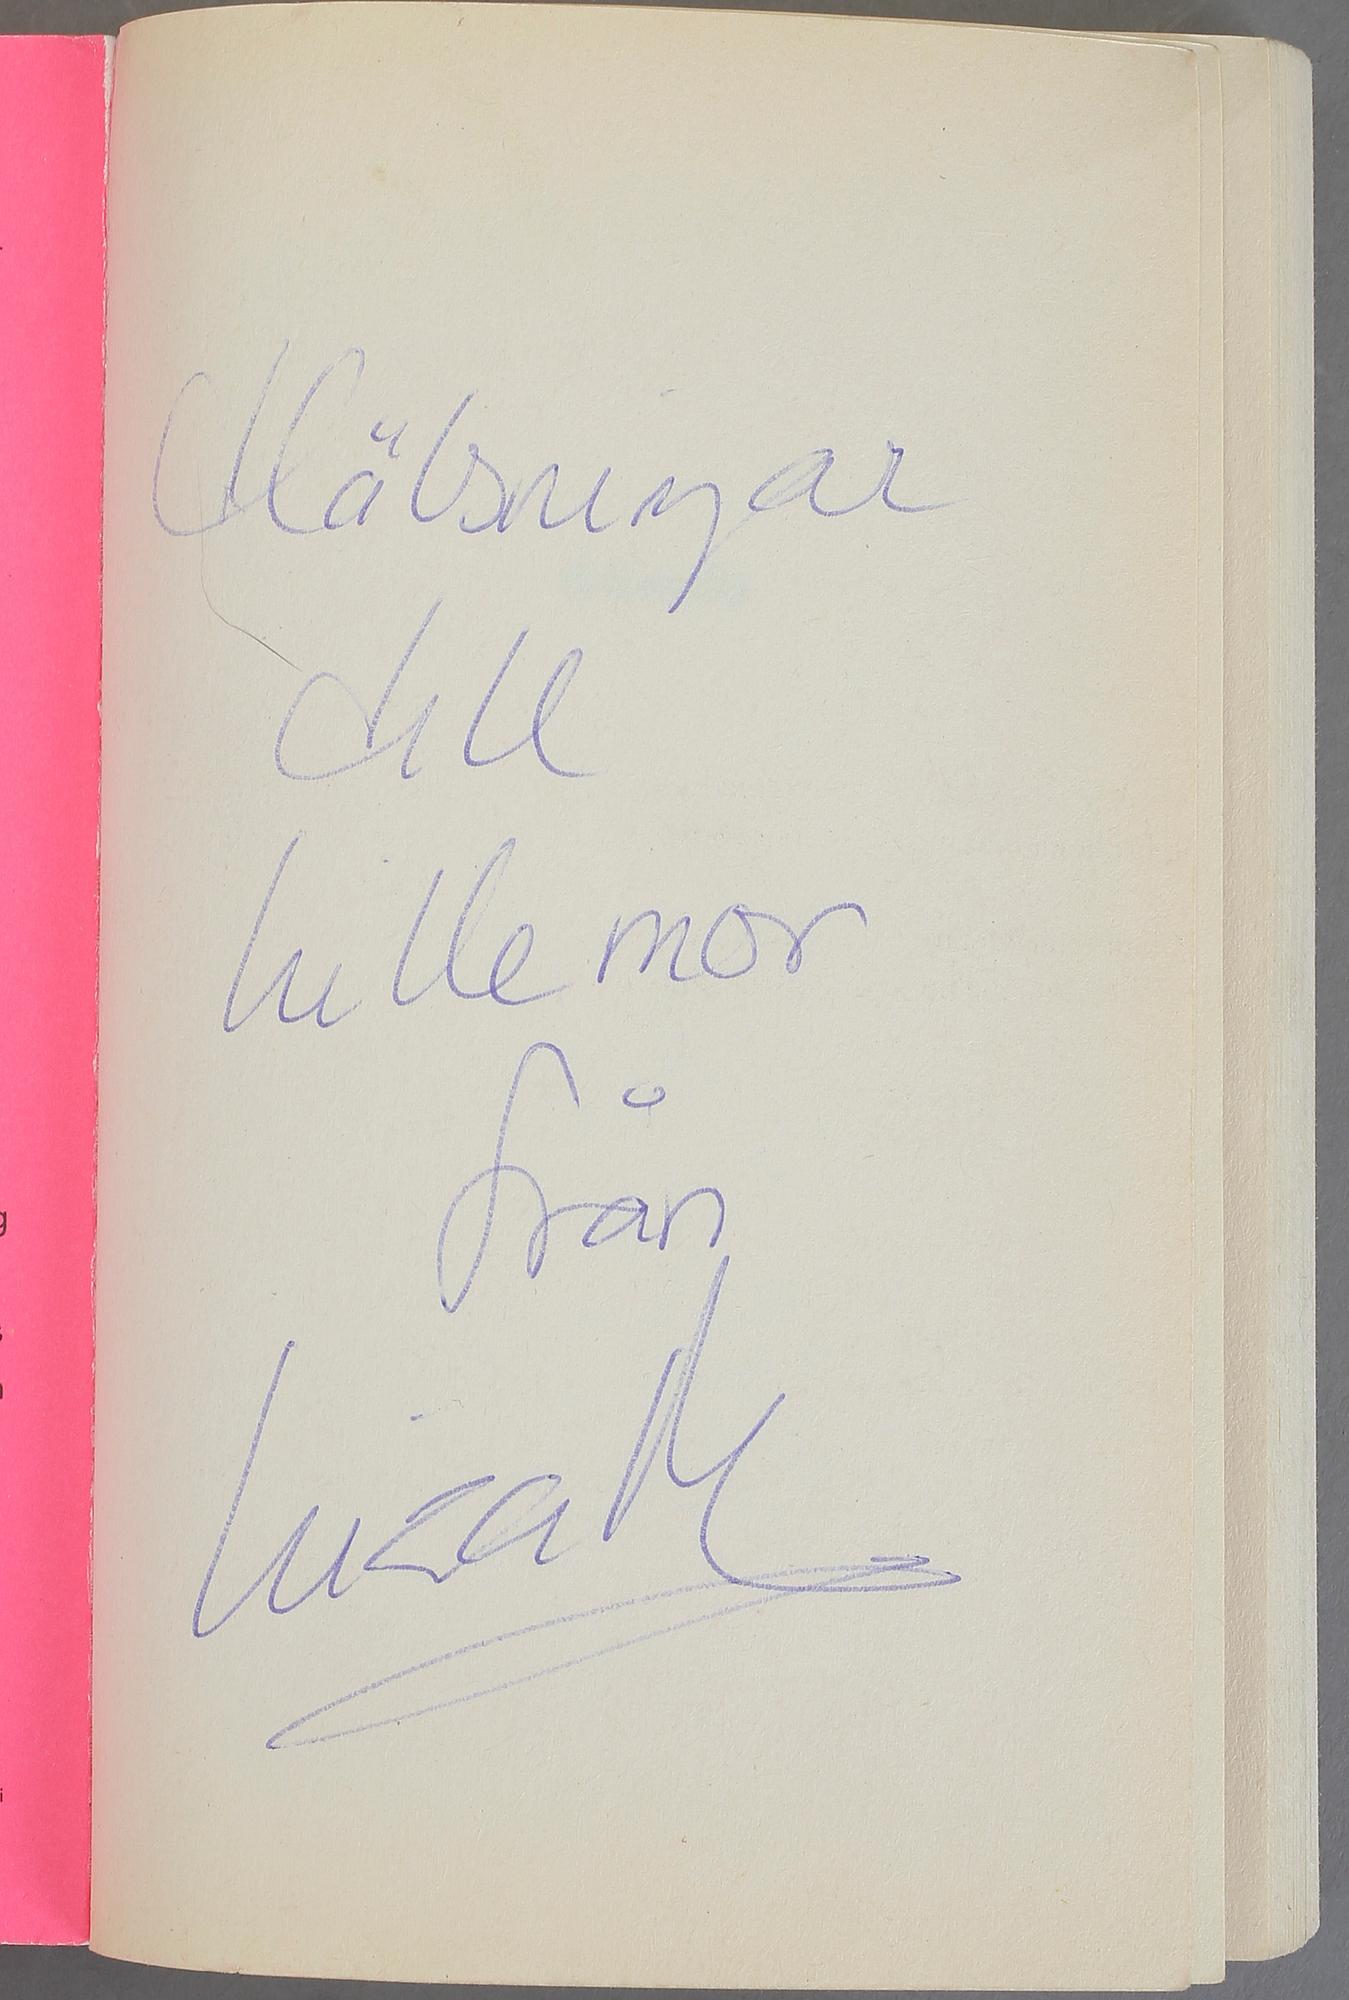 Hälsningar
till
Lillemor
från
Liza M